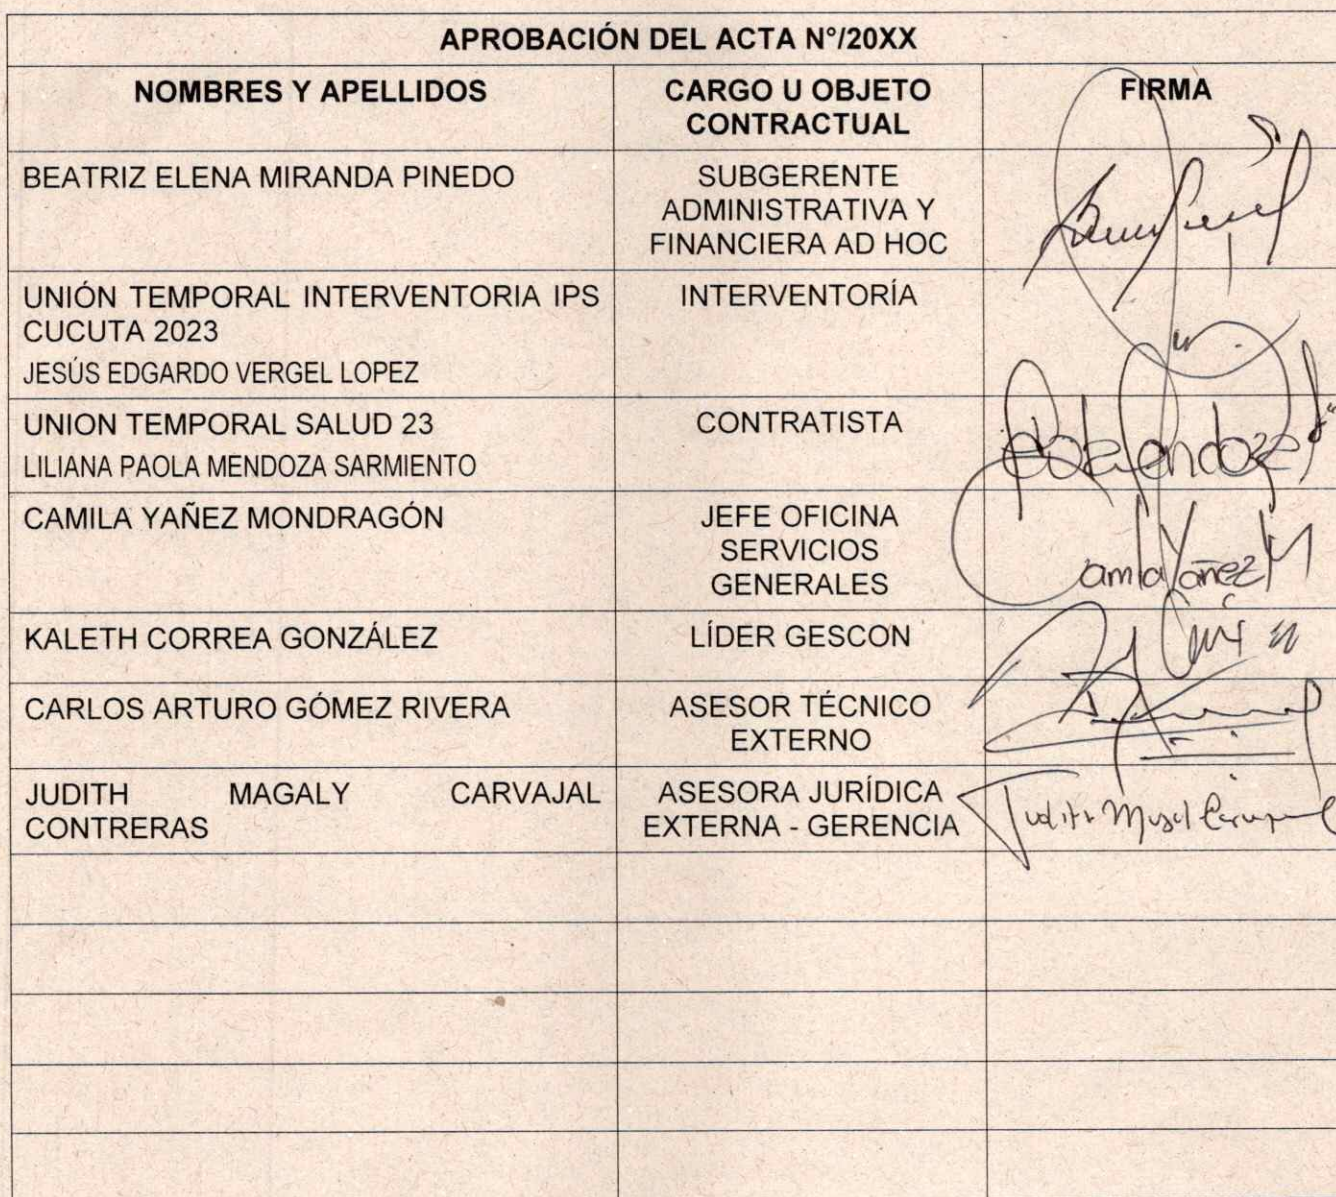 APROBACIÓN DEL ACTA N°/20XX
NOMBRES Y APELLIDOS
CARGO U OBJETO
CONTRACTUAL
FIRMA
BEATRIZ ELENA MIRANDA PINEDO
SUBGERENTE
ADMINISTRATIVA Y
FINANCIERA AD HOC
UNIÓN TEMPORAL INTERVENTORIA IPS
CUCUTA 2023
JESÚS EDGARDO VERGEL LOPEZ
INTERVENTORÍA
UNION TEMPORAL SALUD 23
LILIANA PAOLA MENDOZA SARMIENTO
CONTRATISTA
CAMILA YAÑEZ MONDRAGÓN
JEFE OFICINA
SERVICIOS
GENERALES
Camila Yañez M
KALETH CORREA GONZÁLEZ
LÍDER GESCON
CARLOS ARTURO GÓMEZ RIVERA
ASESOR TÉCNICO
EXTERNO
JUDITH MAGALY CARVAJAL
CONTRERAS
ASESORA JURÍDICA
EXTERNA - GERENCIA